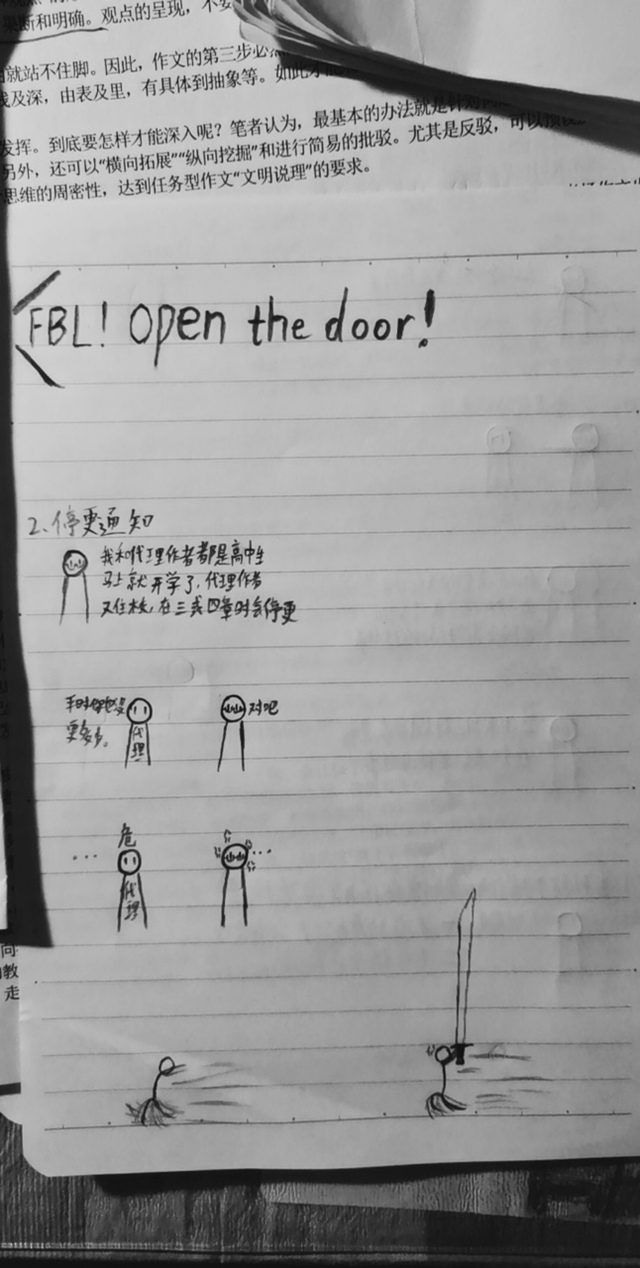 果断和明确。观点的呈现，不要
就站不住脚。因此，作文的第三步必
及深，由表及里，有具体到抽象等。如此才能
发挥。到底要怎样才能深入呢？笔者认为，最基本的办法就是针对
另外，还可以“横向拓展”“纵向挖掘”和进行简易的批驳。尤其是反驳，可以
思维的周密性，达到任务型作文“文明说理”的要求。
FBL! Open the door!
2、停更通知
我和代理作者都是高中生
马上就开学了，代理作者
又住校，在三或四章时会停更
平时你也没
更多少。
代理
对吧
危
...
代理
...
向
教
走